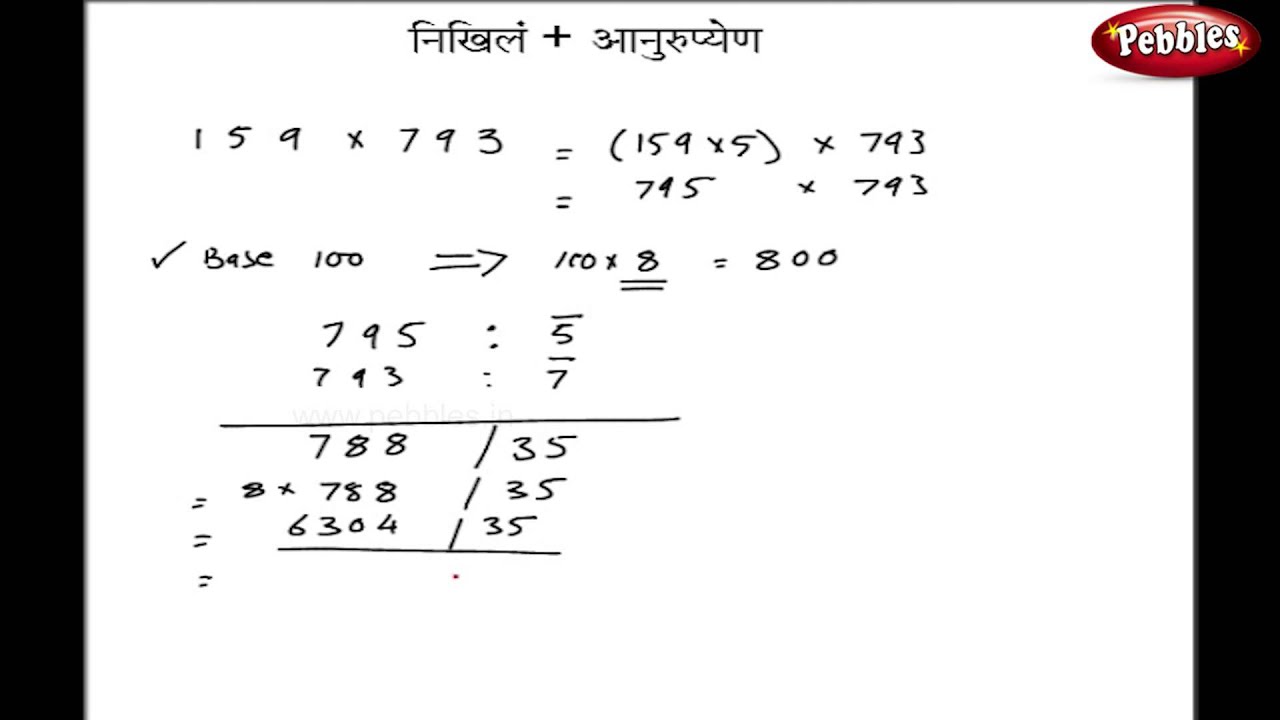 निखिलं + आनुरुप्येण
Pebbles
159 × 793 = (159 × 5) × 793
= 795 × 793
✓ Base 100 ⇒ 100 × 8 = 800
795 : 5̅
793 : 7̅
www.pebbles.in
788 / 35
= 8 × 788 / 35
= 6304 / 35
=